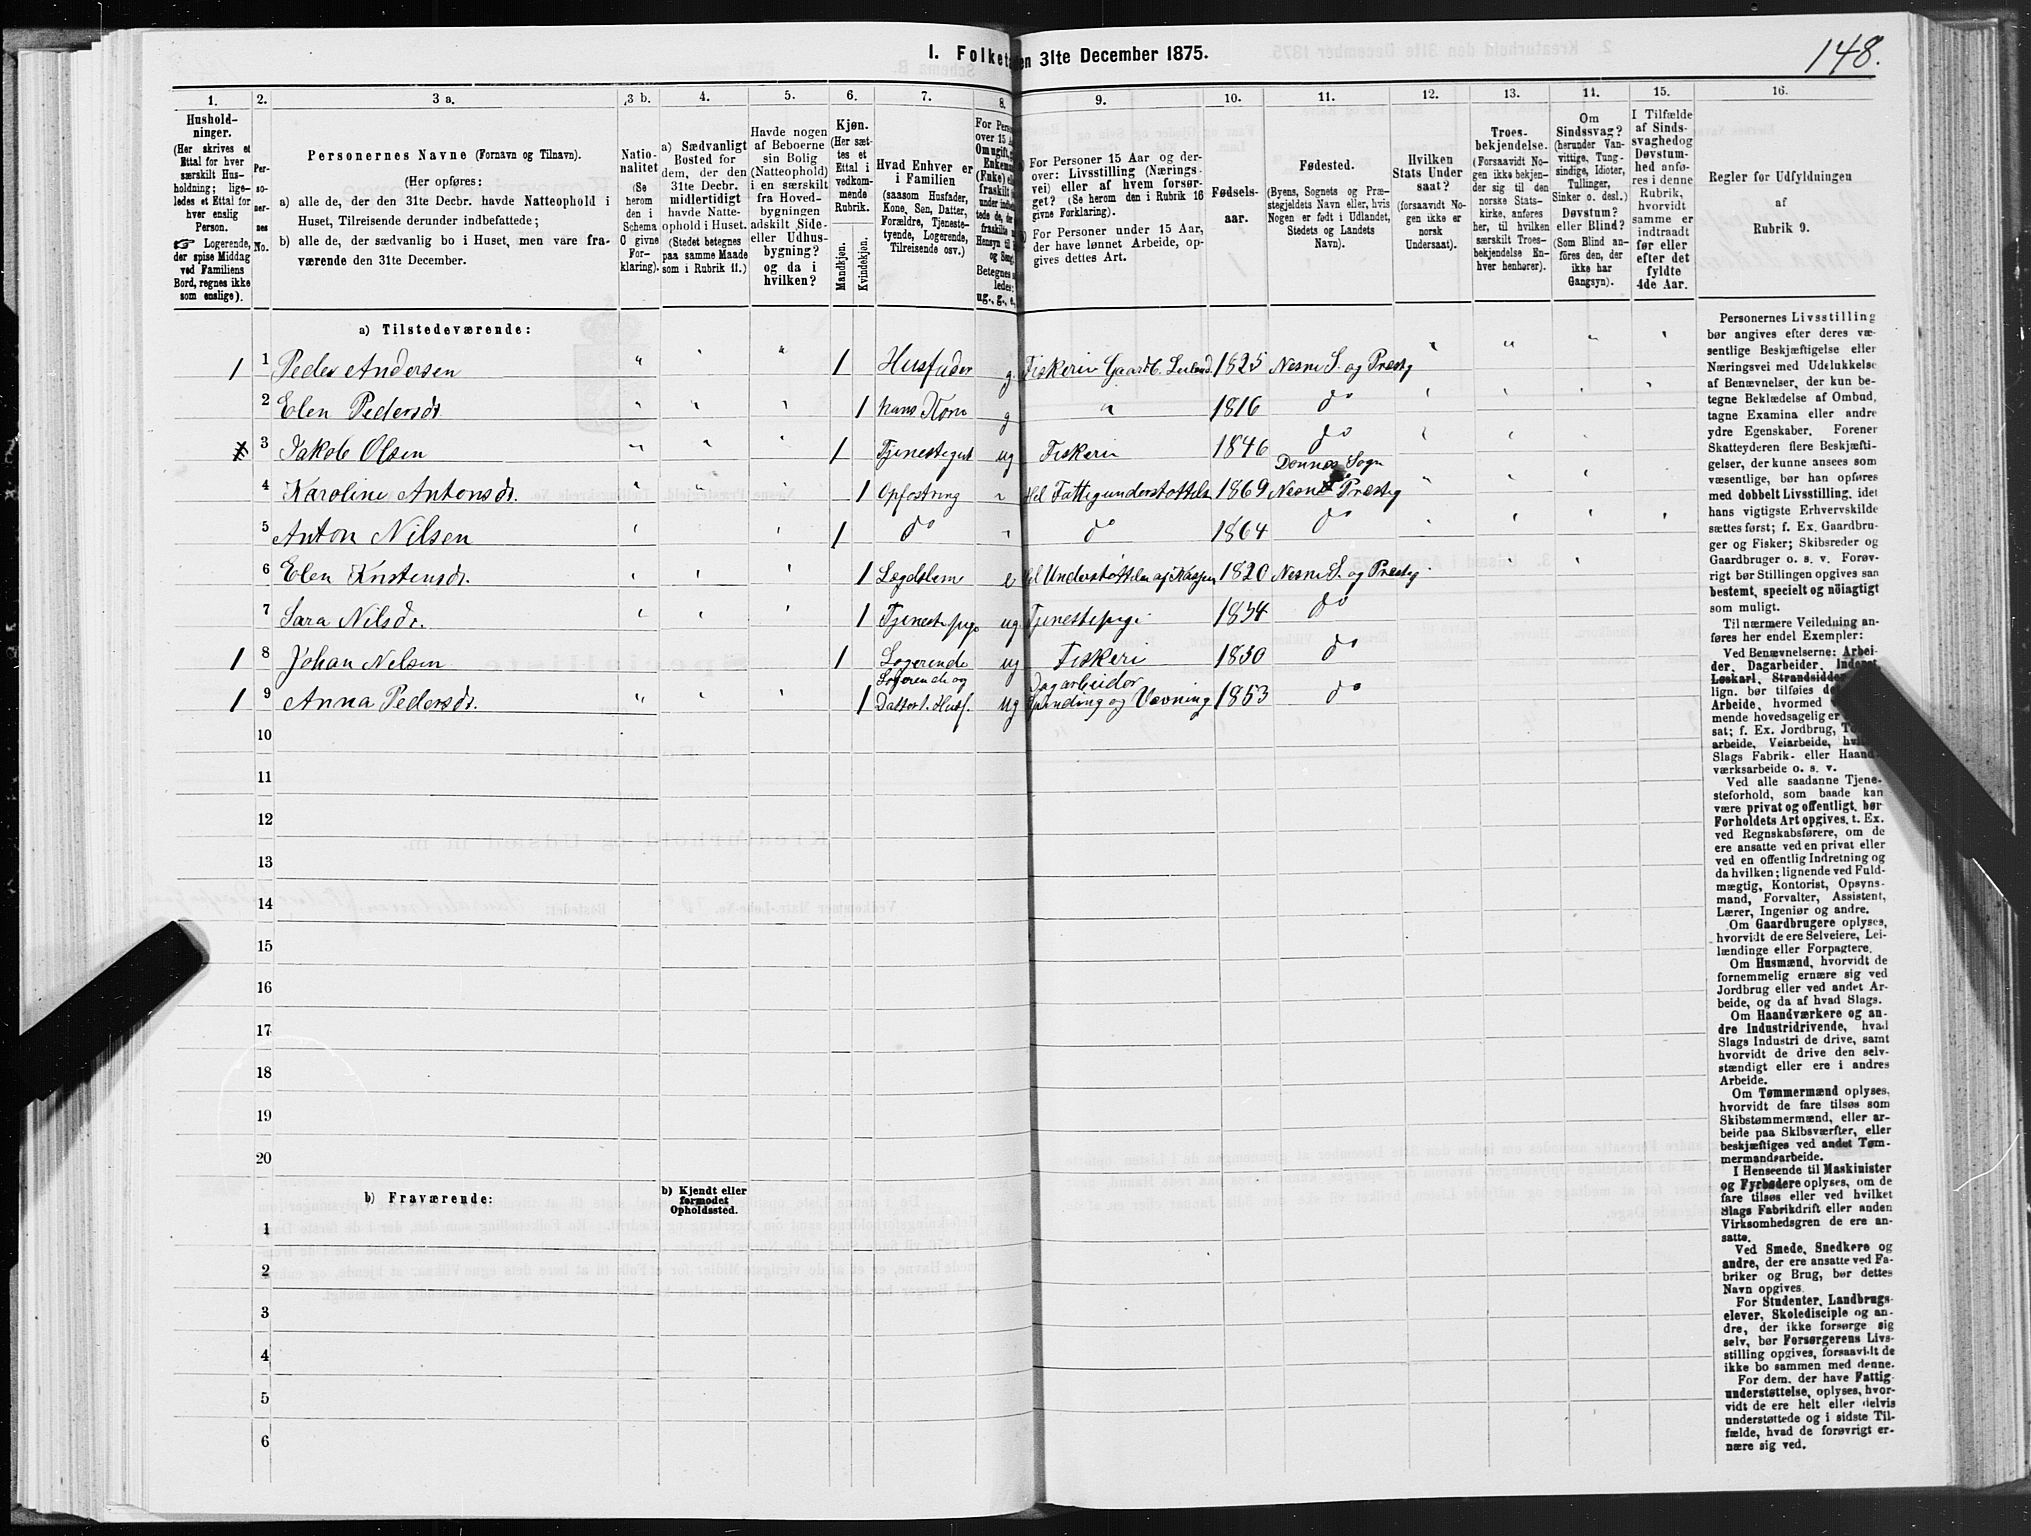 148.
I. Folketæ
en 31te December 1875.
1. 2. 3 a. 3 b. 4. 5. 6. 7. 8. 9. 10. 11. 12. 13. 14. 15. 16.
Hushold-
ninger.
(Her skrives et
Ettal for hver
særskilt Hus-
holdning; lige-
ledes et Ettal for
hver enslig
Person.
☞ Logerende,
der spise Middag
ved Familiens
Bord, regnes ikke
som enslige).
Per-
so-
ner-
nes
No.
Personernes Navne (Fornavn og Tilnavn).
(Her opføres:
a) alle de, der den 31te Decbr. havde Natteophold i
Huset, Tilreisende derunder indbefattede;
b) alle de, der sædvanlig bo i Huset, men vare fra-
værende den 31te December.
Natio-
nalitet
(Se
herom
den i
Schema
C givne
For-
klaring).
a) Sædvanligt
Bosted for
dem, der den
31te Decbr.
midlertidigt
havde Natte-
ophold i Huset.
(Stedet betegnes
paa samme Maade
som i Rubrik 11.)
Havde nogen
af Beboerne
sin Bolig
(Natteophold)
i en særskilt
fra Hoved-
bygningen
adskilt Side-
eller Udhus-
bygning?
og da i
hvilken?
Kjøn.
(Her sæt-
tes et
Ettal i
vedkom-
mende
Rubrik.
Mandkjøn.
Kvindekjøn.
Hvad Enhver er
i Familien
(saasom Husfader,
Kone, Søn, Datter,
Forældre, Tjeneste-
tyende, Logerende,
Tilreisende osv.)
For Pers
over 15 A
Omugift,
Enkem
(Enke) ell
fraskilt
under indbe
tede de, de
fraskilte
Hensyn til
og Seng
Betegnes s
ledes:
ug., g., e.,
For Personer 15 Aar og der-
over: Livsstilling (Nærings-
vei) eller af hvem forsør-
get? (Se herom den i Rubrik 16
givne Forklaring).
For Personer under 15 Aar,
der have lønnet Arbeide, op-
gives dettes Art.
Fødsels-
aar.
Fødested.
(Byens, Sognets og Præ-
stegjeldets Navn eller, hvis
Nogen er født i Udlandet,
Stedets og Landets
Navn).
Hvilken
Stats Under
saat?
(forsaavidt No-
gen ikke er
norsk
Undersaat).
Troes-
bekjendelse.
(Forsaavidt No-
gen ikke bekjen-
der sig til den
norske Stats-
kirke, anføres
her, til hvilken
særskilt Troes-
bekjendelse En-
hver henhører).
Om
Sindssvag?
(herunder Van-
vittige, Tung-
sindige, Idioter,
Tullinger,
Sinker o. desl.)
Døvstum?
eller Blind?
(Som Blind an-
føres den, der
ikke har
Gangsyn).
I Tilfælde
af Sinds-
svaghed og
Døvstum-
hed anfø-
res i denne
Rubrik,
hvorvidt
samme er
indtraadt
før eller
efter det
fyldte
4de Aar.
Regler for Udfyldningen
af
Rubrik 9.
a) Tilstedeværende:
1 1 Peder Andersen " 1 Husfader g. Fiskeri Gaardb. Leilend. 1825 Nesne S. og Præstg
2 Elen Pedersdr. 1 hans Kone g " 1816 do
3 Jakob Olsen 1 Tjenestegut ug Fiskeri 1846 do
Donnes Sogn
4 Karoline Antonsdr. 1 Opfostring Hel Fattigunderstøttelse 1869 Nesne Præstg
5 Anton Nilsen 1 do do 1864 do
6 Elen Kristensdr. 1 Lægdslem e Hel Understøttelse af 1820 Nesne S. og Præstg
7 Sara Nilsdr. 1 Tjenestepige ug Tjenestepige 1854 do
1 8 Johan Nelsen 1 Logerende ug Fiskeri 1850 do
Logerende og Dagarbeider
1 9 Anna Pedersdr. 1 Datter t. Husf. ug Spinding og Vævning 1853 do
10
11
12
13
14
15
16
17
18
19
20
b) Fraværende:
b) Kjendt eller
formodet
Opholdssted.
1
2
3
4
5
6
Personernes Livsstilling
bør angives efter deres væ-
sentlige Beskjæftigelse eller
Næringsvei med Udelukkelse
af Benævnelser, der kun be-
tegne Beklædelse af Ombud,
tagne Examina eller andre
ydre Egenskaber. Forener
Skatteyderen flere Beskjæfti-
gelser, der kunne ansees som
væsentlige, bør han opføres
med dobbelt Livsstilling, idet
hans vigtigste Erhvervskilde
sættes først; f. Ex. Gaardbru-
ger og Fisker; Skibsreder og
Gaardbruger o. s. v. Forøv-
rigt bør Stillingen opgives saa
bestemt, specielt og nöiagtigt
som muligt.
Til nærmere Veiledning an-
føres her endel Exempler:
Ved Benævnelserne: Arbei-
der, Dagarbeider, Inderst,
Løskarl, Strandsidder
lign. bør tilføies de
Arbeide, hvormed
mende hovedsagelig er
sat; f. Ex. Jordbrug, To
arbeide, Veiarbeide, hvi
Slags Fabrik- eller Haand-
værksarbeide o. s. v.
Ved alle saadanne Tjene-
steforhold, som baade kan
være privat og offentligt, bør
Forholdets Art opgives, t. Ex.
ved Regnskabsførere, om de
ere ansatte ved en privat eller
ved en offentlig Indretning og
da hvilken; lignende ved Fuld-
mægtig, Kontorist, Opsyns-
mand, Forvalter, Assistent,
Lærer, Ingeniør og andre.
Om Gaardbrugere oplyses,
hvorvidt de ere Selveiere, Lei-
lændinge eller Forpagtere.
Om Husmænd, hvorvidt de
fornemmelig ernære sig ved
Jordbrug eller ved andet Ar-
beide, og da af hvad Slags.
Om Haandværkere og an-
dre Industridrivende, hvad
Slags Industri de drive, samt
hvorvidt de drive den selv-
stændigt eller ere i andres
Arbeide.
Om Tømmermænd oplyses,
hvorvidt de fare tilsøs som
Skibstømmermænd, eller ar-
beide paa Skibsværfter, eller
beskjæftiges ved andet Tøm-
mermandsarbeide.
I Henseende til Maskinister
og Fyrbødere oplyses, om de
fare tilsøs eller ved hvilket
Slags Fabrikdrift eller anden
Virksomhedsgren de ere an-
satte.
Ved Smede, Snedkere og
andre, der ere ansatte ved Fa-
briker og Brug, bør dettes
Navn opgives.
For Studenter, Landbrugs-
elever, Skoledisciple og an-
dre, der ikke forsørge sig
selv, bør Forsørgerens Livs-
stilling opgives, forsaavidt de
ikke bo sammen med denne.
For dem, der have Fattig-
understøttelse, oplyses, hvor-
vidt de ere helt eller delvis
understøttede og i sidste Til-
fælde, hvad de forøvrigt er-
nære sig ved.